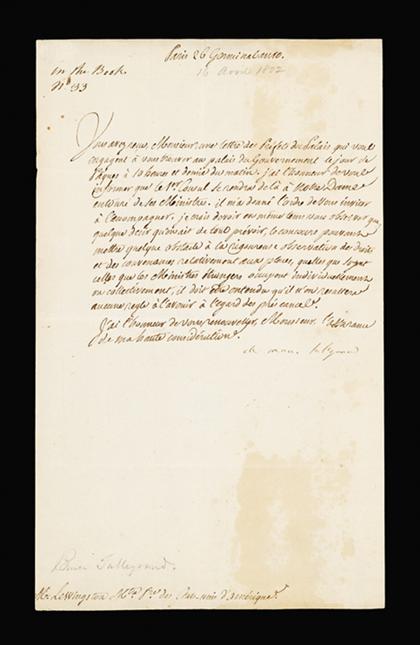 Paris 26 Germinal an 10.
16 Avril 1802
In the Book
No 33
Vous avez reçu, Monsieur, une lettre des Préfets du Palais qui vous
engagent à vous trouver au palais du Gouvernement le jour de
Pâques à 10 heures et demie du matin. j'ai l'honneur de vous
informer que le 1er Consul se rendra de là à Notre Dame
entouré de ses Ministres. il m'a donné l'ordre de vous inviter
à l'accompagner. je crois devoir en même tems vous observer que,
quelque désir qu'on ait de tout prévoir, le concours pouvant
mettre quelque obstacle à la rigoureuse observation des droits
et des convenances relativement aux places, quelles que soyent
celles que les Ministres étrangers occupent individuellement
ou collectivement, il doit être entendu qu'il n'en resultera
aucune regle à l'avenir à l'egard des préséances.
J'ai l'honneur de vous renouveller, Monsieur, l'assurance
de ma haute considération.
ch. mau. talleyrand
Prince Talleyrand.
Mr. Lewingston Mtre. Pre. des Etats unis d'amérique.